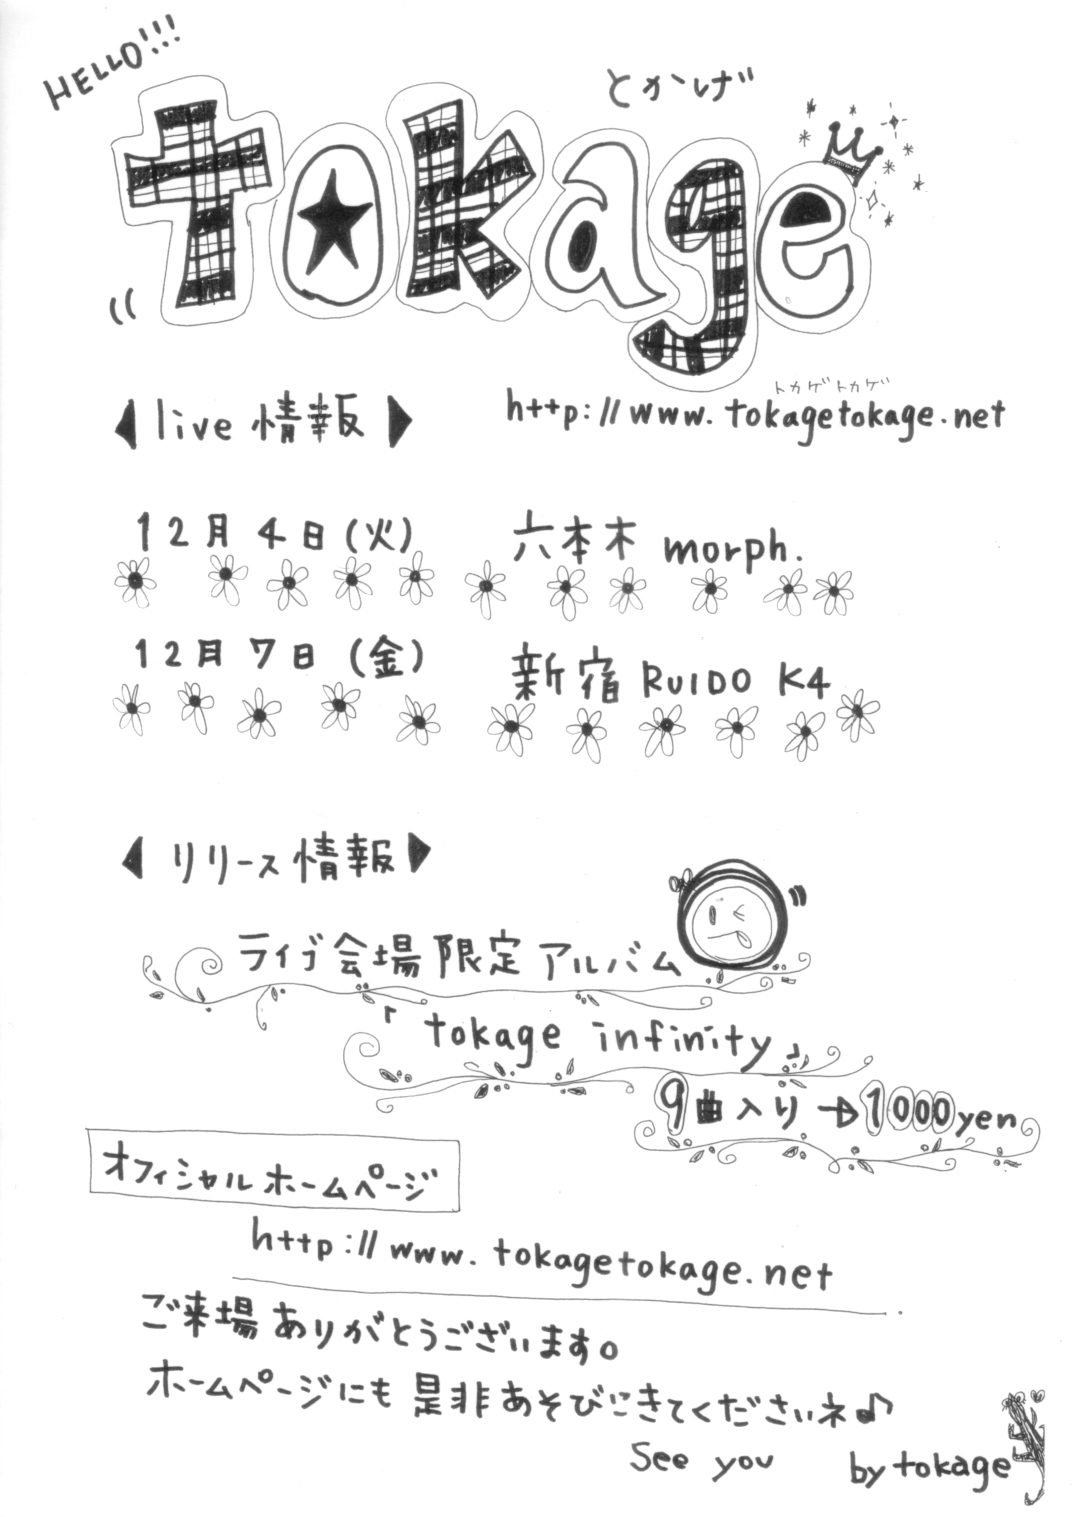 HELLO!!!
とかげ
tokage
トカゲトカゲ
live 情報
http://www.tokagetokage.net
12月4日(火) 六本木 morph.
12月7日(金) 新宿 RUIDO K4
リリース情報
ライブ会場限定アルバム
「tokage infinity」
9曲入り→1000yen
オフィシャルホームページ
http://www.tokagetokage.net
ご来場ありがとうございます。
ホームページにも是非あそびにきてくださいネ♪
See you by tokage